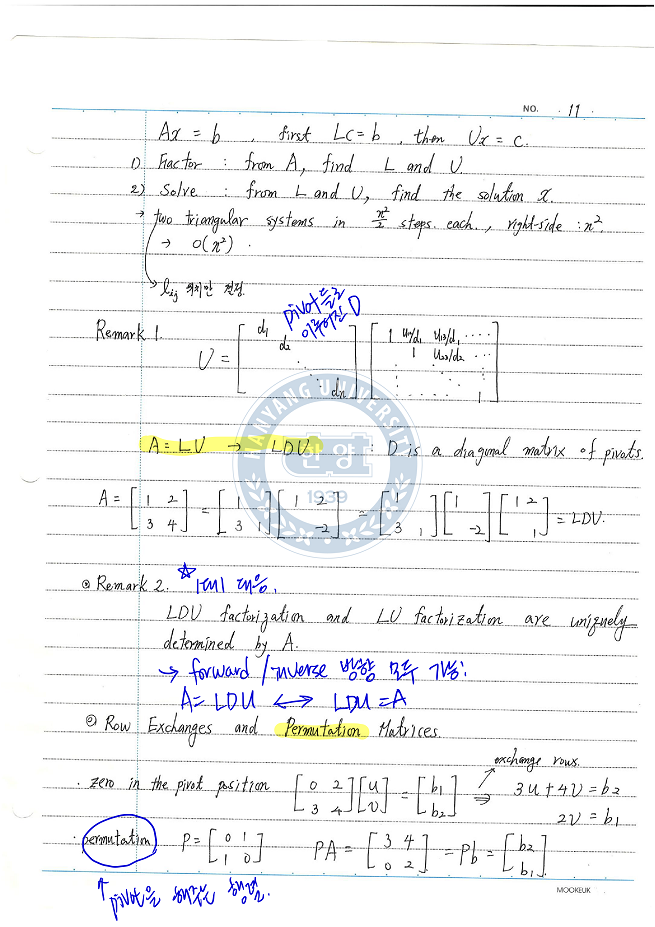 NO. 11
Ax = b , first Lc = b , then Ux = c.
1) Factor : from A, find L and U.
2) Solve : from L and U, find the solution x.
→ two triangular systems in n²/2 steps each., right-side : n².
→ O(n²).
lij 위치만 결정.
pivot들로
이루어진 D
Remark 1.
U = [ d1 d2 ⋱ dn ] [ 1 u12/d1 u13/d1 ···· 1 u23/d2 ··· 1 ]
HANYANG UNIVERSITY
한양
1939
A = LU → LDU : D is a diagonal matrix of pivots.
A = [ 1 2 3 4 ] = [ 1 3 1 ] [ 1 2 -2 ] = [ 1 3 1 ] [ 1 -2 ] [ 1 2 1 ] = LDU.
◎ Remark 2. ☆ 1대1 대응.
LDU factorization and LU factorization are uniquely
determined by A.
→ forward / inverse 방향 모두 가능!
A = LDU ⟷ LDU = A
◎ Row Exchanges and Permutation Matrices.
exchange rows.
· zero in the pivot position [ 0 2 3 4 ] [ u v ] = [ b1 b2 ] ⇒ 3u + 4v = b2
2v = b1
· permutation P = [ 0 1 1 0 ] PA = [ 3 4 0 2 ] = Pb = [ b2 b1 ]
↑ pivot을 해주는 행렬.
MOOKEUK